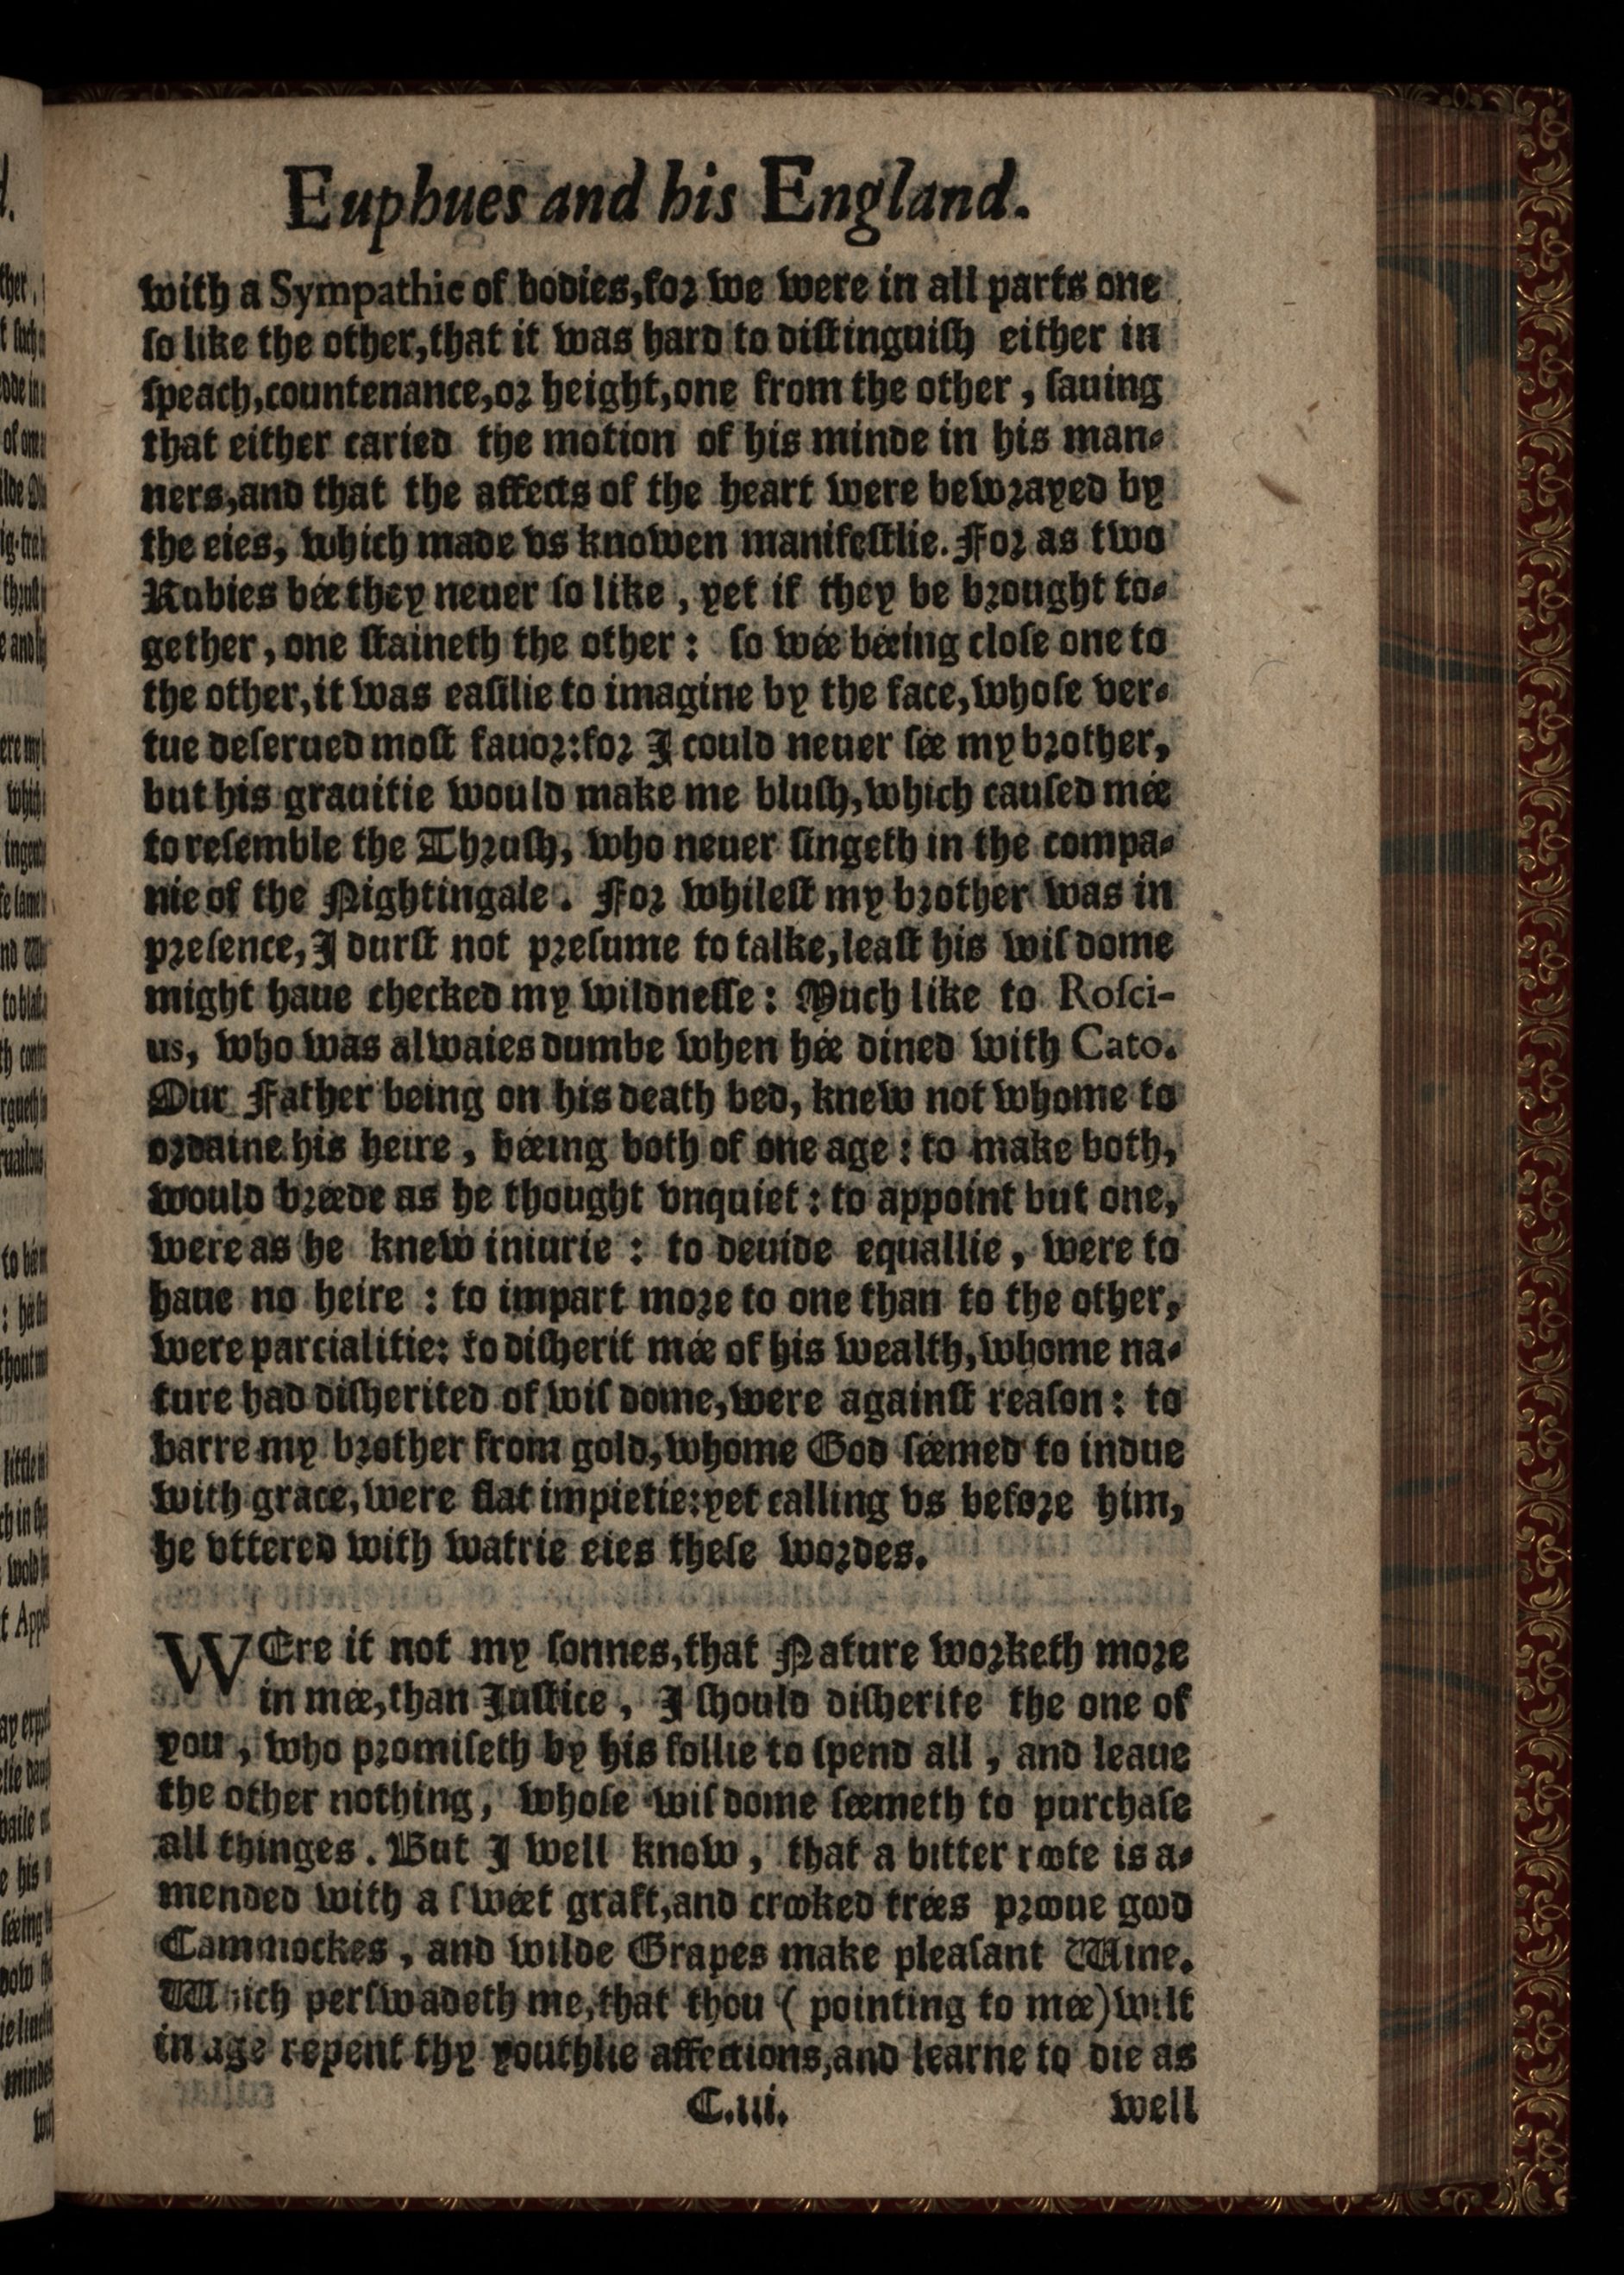 Euphues and his England.
with a Sympathie of bodies,for we were in all parts one
ſo like the other,that it was hard to diſtinguiſh either in
ſpeach,countenance,or height,one from the other, ſauing
that either caried the motion of his minde in his man-
ners,and that the affects of the heart were bewrayed by
the eies, which made vs knowen manifeſtlie. For as two
Rubies bée they neuer ſo like, yet if they be brought to-
gether, one ſtaineth the other: ſo wée béeing cloſe one to
the other,it was eaſilie to imagine by the face,whoſe ver-
tue deſerued moſt fauor:for I could neuer ſée my brother,
but his grauitie would make me bluſh,which cauſed mée
to reſemble the Thruſh, who neuer ſingeth in the compa-
nie of the Nightingale. For whileſt my brother was in
preſence,I durſt not preſume to talke,leaſt his wiſdome
might haue checked my wildneſſe: Much like to Roſci-
us, who was alwaies dumbe when hée dined with Cato.
Our Father being on his death bed, knew not whome to
ordaine his heire, béeing both of one age: to make both,
would bréede as he thought vnquiet: to appoint but one,
were as he knew iniurie: to deuide equallie, were to
haue no heire: to impart more to one than to the other,
were parcialitie: to diſherit mée of his wealth,whome na-
ture had diſherited of wiſdome,were againſt reaſon: to
barre my brother from gold,whome God ſéemed to indue
with grace,were flat impietie:yet calling vs before him,
he vttered with watrie eies theſe wordes.
WEre it not my ſonnes,that Nature worketh more
in mée,than Iuſtice, I ſhould diſherite the one of
you, who promiſeth by his follie to ſpend all, and leaue
the other nothing, whoſe wiſdome ſéemeth to purchaſe
all thinges. But I well know, that a bitter roote is a-
mended with a ſwéet graft,and crooked trées prooue good
Cammockes, and wilde Grapes make pleaſant Wine.
Which perſwadeth me,that thou (pointing to mée)wilt
in age repent thy youthlie affections,and learne to die as
C.iii. well